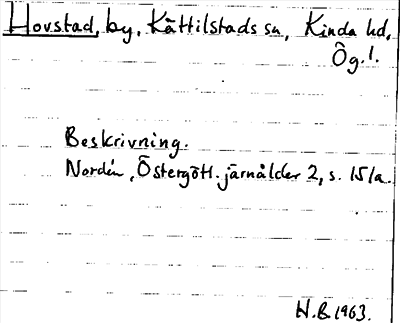 Hovstad, by, Kättilstads sn, Kinda hd,
Ög. l.
Beskrivning.
Nordén, Östergötl. järnålder 2, s. 151a.
H.B. 1963.